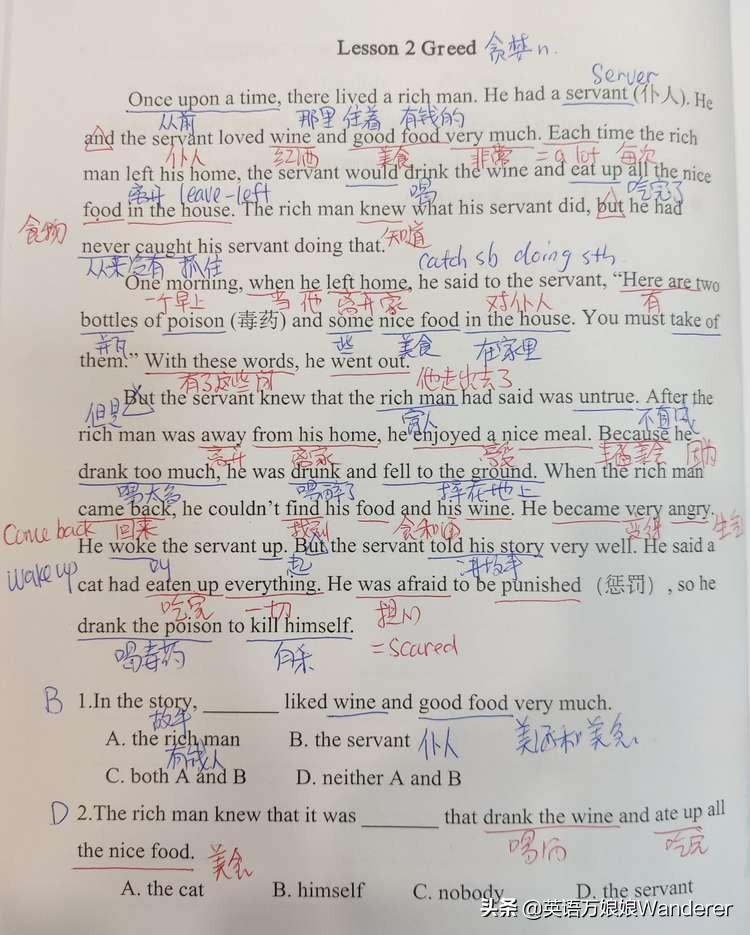 Lesson 2 Greed 贪婪 n.
Server
Once upon a time, there lived a rich man. He had a servant (仆人). He
从前 那里 住着 有钱的
and the servant loved wine and good food very much. Each time the rich
仆人 红酒 美食 非常 = a lot 每次
man left his home, the servant would drink the wine and eat up all the nice
离开 leave-left 喝 吃完了
food in the house. The rich man knew what his servant did, but he had
食物
never caught his servant doing that. 知道
从来没有 抓住 catch sb doing sth
One morning, when he left home, he said to the servant, “Here are two
一个早上 当他 离开家 对仆人 有
bottles of poison (毒药) and some nice food in the house. You must take of
些 美食 在家里
them.” With these words, he went out.
他走出去了
But the servant knew that the rich man had said was untrue. After the
但是 富人
rich man was away from his home, he enjoyed a nice meal. Because he
离开 离家 享受 因为
drank too much, he was drunk and fell to the ground. When the rich man
喝太多 喝醉了 摔在地上
came back, he couldn’t find his food and his wine. He became very angry.
Come back 回来 找到 食和酒 变得 生气
He woke the servant up. But the servant told his story very well. He said a
wake up 起 讲故事
cat had eaten up everything. He was afraid to be punished （惩罚）, so he
吃完 一切 担心
drank the poison to kill himself.
喝毒药 自杀 = scared
B 1.In the story, _______ liked wine and good food very much.
故事
A. the rich man B. the servant 仆人 美酒和美食
有钱人
C. both A and B D. neither A and B
D 2.The rich man knew that it was _______ that drank the wine and ate up all
喝酒 吃完
the nice food. 美食
A. the cat B. himself C. nobody D. the servant
头条 @英语万娘娘Wanderer